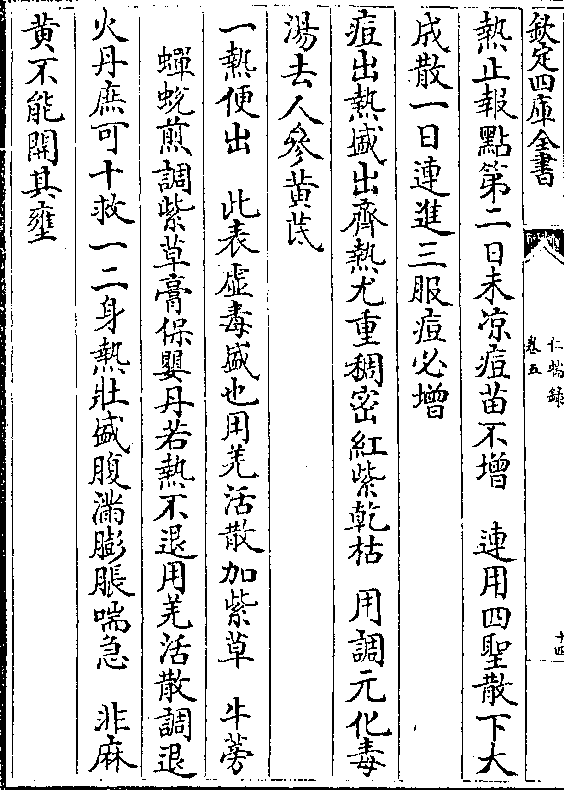 欽定四庫全書
仁端錄
卷五
十四
熱止報點第二日未凉痘苗不增　連用四聖散下大
成散一日連進三服痘必增
痘出熱盛出齊熱尤重稠密紅紫乾枯　用調元化毒
湯去人參黄芪
一熱便出　此表虛毒盛也用羌活散加紫草　牛蒡
蟬蛻煎調紫草膏保嬰丹若熱不退用羌活散調退
火丹庶可十救一二身熱壯盛腹滿膨脹喘急　非麻
黄不能開其壅